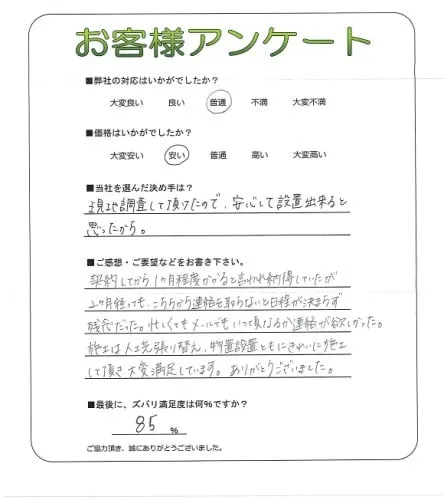 お客様アンケート
■弊社の対応はいかがでしたか?
大変良い 良い 普通 不満 大変不満
■価格はいかがでしたか?
大変安い 安い 普通 高い 大変高い
■当社を選んだ決め手は?
現地調査して頂けたので、安心して設置出来ると
思ったから。
■ご感想・ご要望などをお書き下さい。
契約してから1ヶ月程度かかると言われ納得していたが
2ヶ月経っても、こちらから連絡を取らないと日程が決まらず
残念だった。忙しくてもメールでもいつ頃なるか連絡が欲しかった。
施工は人工芝張り替え、物置設置ともにきれいに施工
して頂き大変満足しています。ありがとうございました。
■最後に、ズバリ満足度は何%ですか?
85 %
ご協力頂き、誠にありがとうございました。